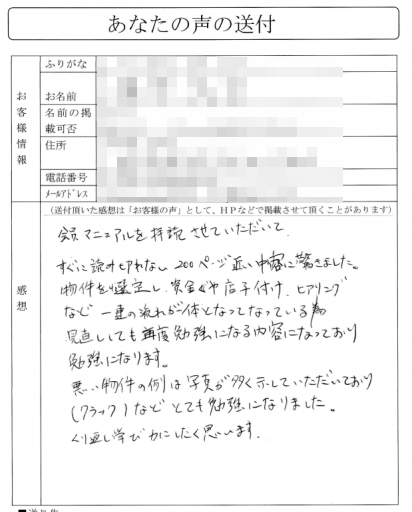 あなたの声の送付
お客様情報
ふりがな
お名前
名前の掲
載可否
住所
電話番号
メールアドレス
(送付頂いた感想は「お客様の声」として、HPなどで掲載させて頂くことがあります)
感想
会員マニュアルを拝読させていただいて、
すぐに読み切れない200ページ近い内容に驚きました。
物件を選定し、資金ぐや店子付け、ヒアリング
など一連の流れが一体となっている為
見直しても再度勉強になる内容になっており
勉強になります。
悪い物件の例は写真が多く示していただいており
(クラック)などとても勉強になりました。
くり返し学び力にしたく思います。